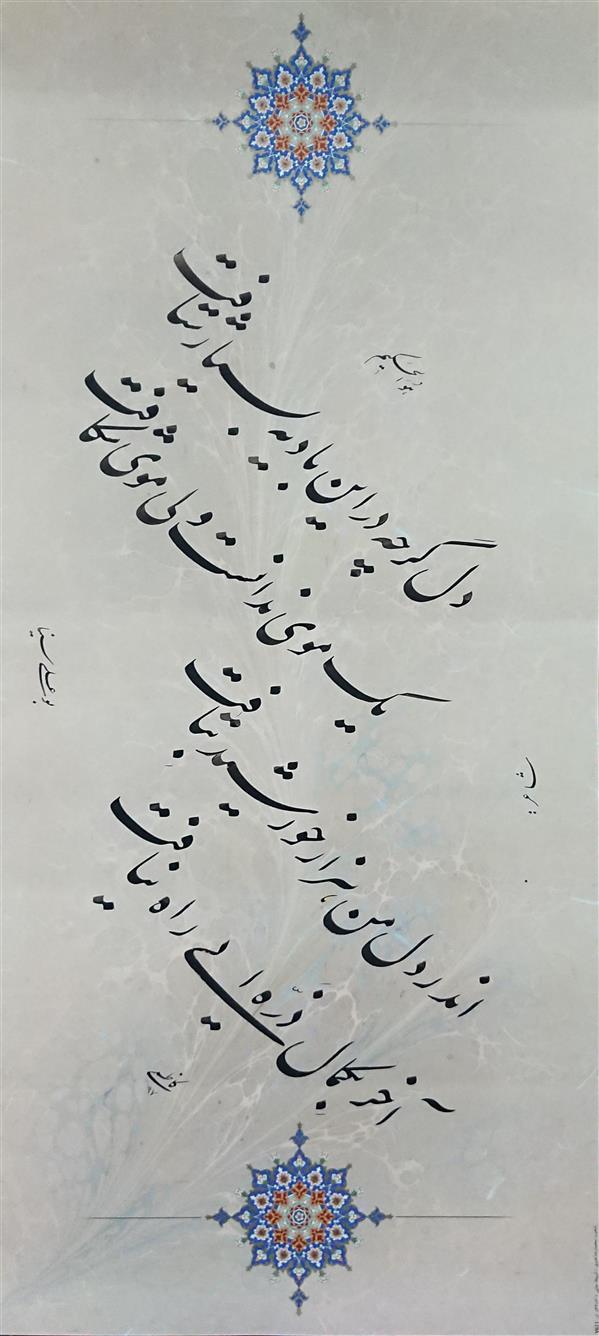 هوالحکیم
دل گرچه در این بادیه بسیار شتافت
یک موی ندانست ولی موی شکافت
اندر دل من هزار خورشید بتافت
آخر بکمال ذرّه ایی راه نیافت
بوعلی سینا